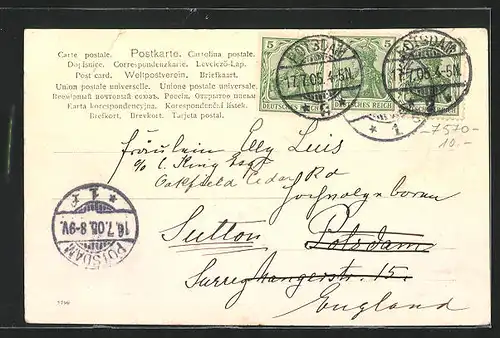 Carte postale. Postkarte. Cartolina postale.
Dopisnice. Correspondenzkarte. Levelező-Lap.
Post card. Weltpostverein. Briefkaart.
Union postale universelle. Unione postale universale.
Всемірный почтовый союзъ. Россія. Открытое письмо
Karta korespondencyjna. Korespondenční lístek.
Brefkort. Brevkort. Tarjeta postal.
5 5
POTSDAM
17.7.05. 4-5N.
* 1
DEUTSCHES REICH
DEUTSCHES REICH
POTSDAM
17.7.05. 4-5N.
* 1
7570
10.-
Fräulein Elly Luis
c/o L. King Esq
Oakfield Cedar Rd
Hochwolgeboren
Sutton Potsdam
Surrey 15.
England
* 1
POTSDAM
16.7.05. 8-9V.